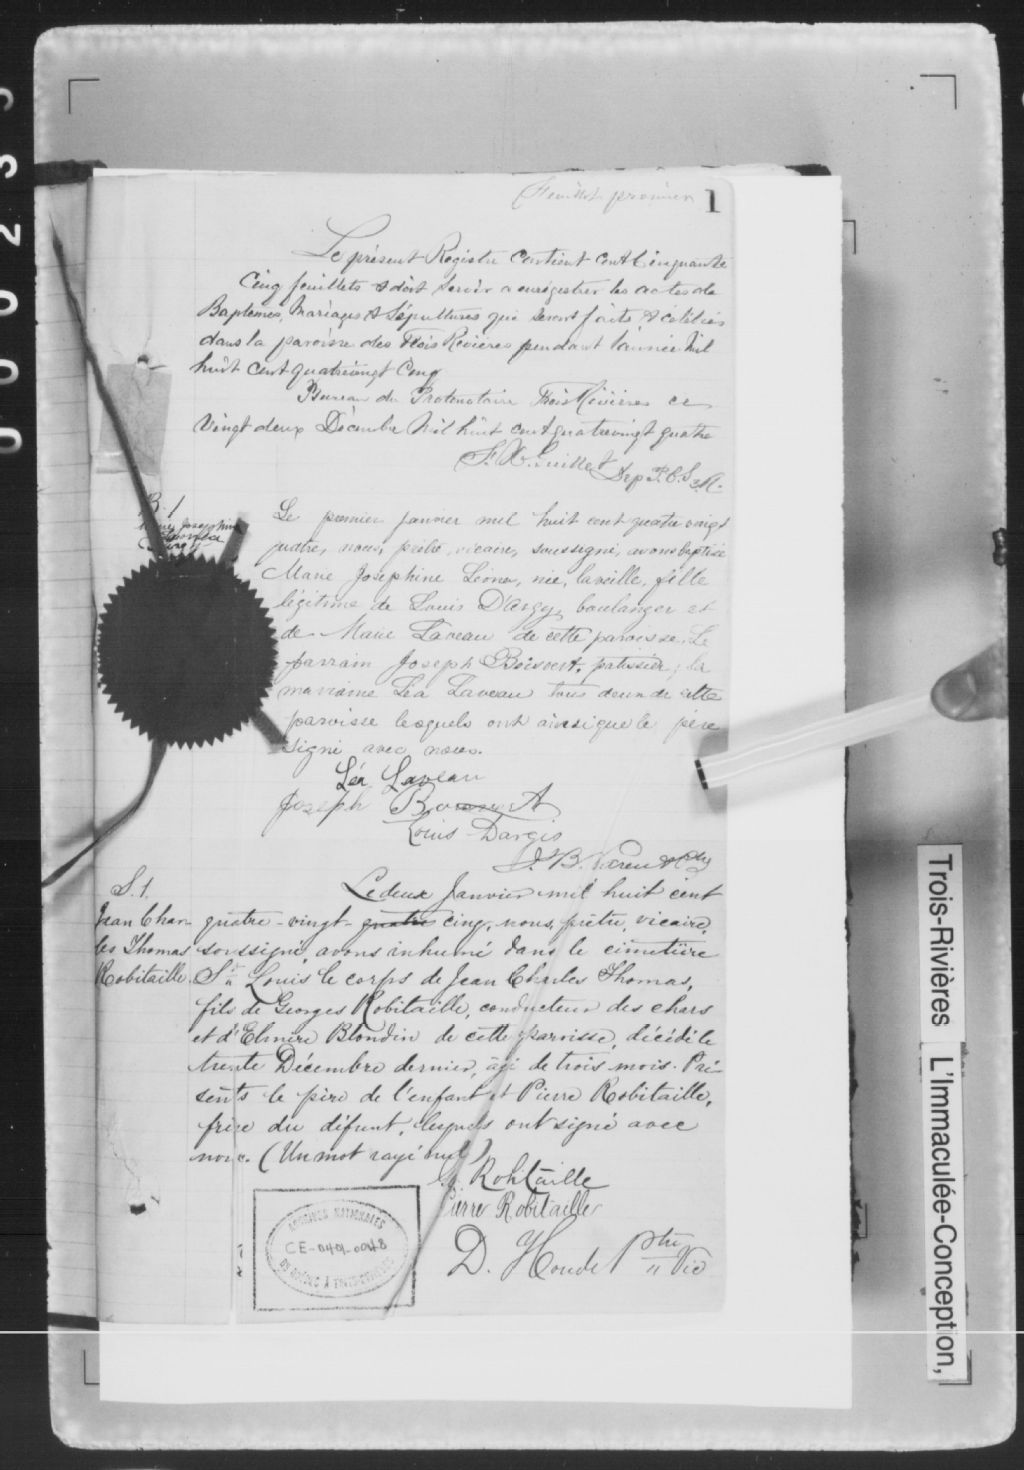 000235
Feuillet premier 1
Le présent Registre contient cent Cinquante
Cinq feuillets & doit servir a enrégistrer les actes de
Baptemes, Mariages & Sépultures qui seront faits & célébrés
dans la paroisse des Trois Rivières pendant l'année Mil
huit cent quatrevingt Cinq
Bureau du Protonotaire Trois Rivières ce
Vingt deux Décembre Mil huit cent quatrevingt quatre
Dep. P.C.S.
B. 1
Marie Josephine
Le premier janvier mil huit cent quatre vingt
quatre, nous, prêtre, vicaire, soussigné, avons baptisé
Marie Josephine Léona, née, la veille, fille
légitime de Louis D'Argy, boulanger et
de Marie Laveau de cette paroisse. Le
parrain Joseph Boisvert, patissier; la
marraine Léa Laveau tous deux de cette
paroisse lesquels ont ainsi que le père
signé avec nous.
Léa Laveau
Joseph Boisvert
Louis Dargis
J. B. Ptre
S. 1.
Jean Char-
les Thomas
Robitaille.
Le deux Janvier mil huit cent
quatre-vingt-quatre cinq, nous, prêtre, vicaire,
soussigné, avons inhumé dans le cimetière
St Louis le corps de Jean Charles Thomas,
fils de Georges Robitaille, conducteur des chars
et d'Elmire Blondin de cette paroisse, décédé le
trente Décembre dernier, âgé de trois mois. Pré-
sents le père de l'enfant et Pierre Robitaille,
frère du défunt, lesquels ont signé avec
nous. (Un mot rayé nul)
G. Robitaille
Pierre Robitaille
D. Houde Ptre Vic
ARCHIVES NATIONALES
CE-0401-0048
DU QUÉBEC À TROIS-RIVIÈRES
Trois-Rivières L'Immaculée-Conception,